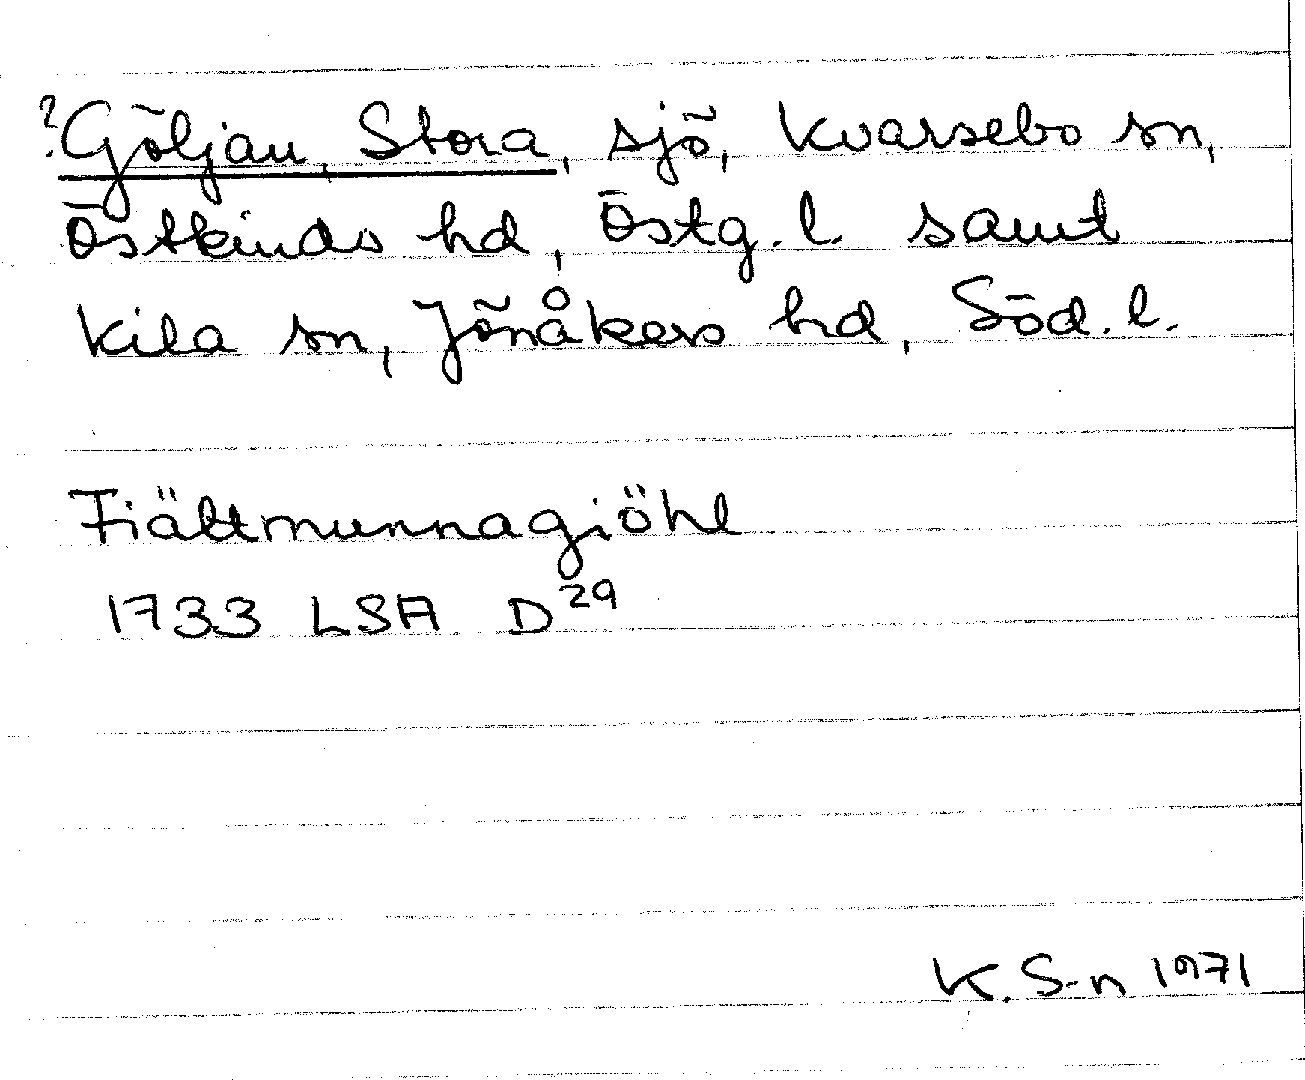 ?Göljau, Stora, sjö, Kvarsebo sn,
Östkinds hd, Östg. l. samt
Kila sn, Jönåkers hd, Söd. l.
Fiältmunnagiöhl
1733 LSA D²⁹
K. S-n 1971